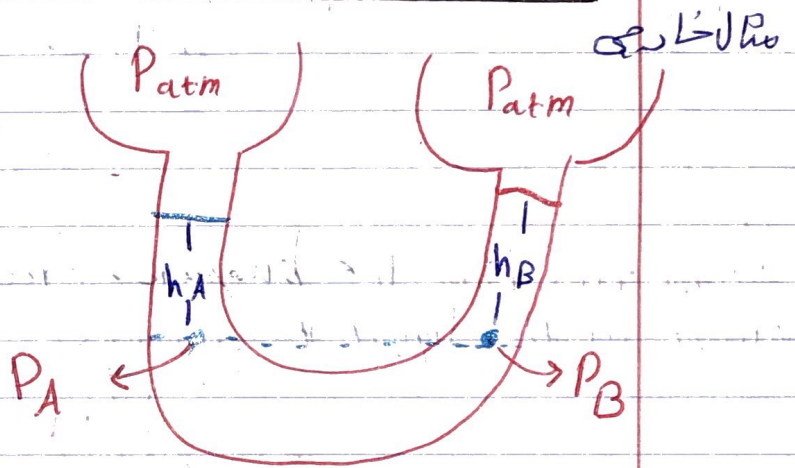 مثال خارجي
Patm
Patm
hA
hB
PA
PB